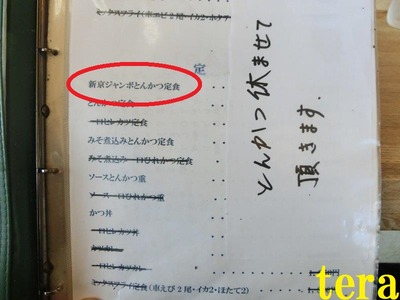 ミックスフライ(車エビ2尾・イカ2・ホタテ
定
新京ジャンボとんかつ定食
とんかつ定食
一口ヒレカツ定食
みそ煮込みとんかつ定食
みそ煮込み一口ひれかつ定食
ソースとんかつ重
ソース一口ひれかつ重
かつ丼
一口ヒレカツ丼
カツカレー
一口ヒレカツカレー
ミックスフライ定食(車えび2尾・イカ2・ほたて2)
とんかつ休ませて
頂きます.
tera